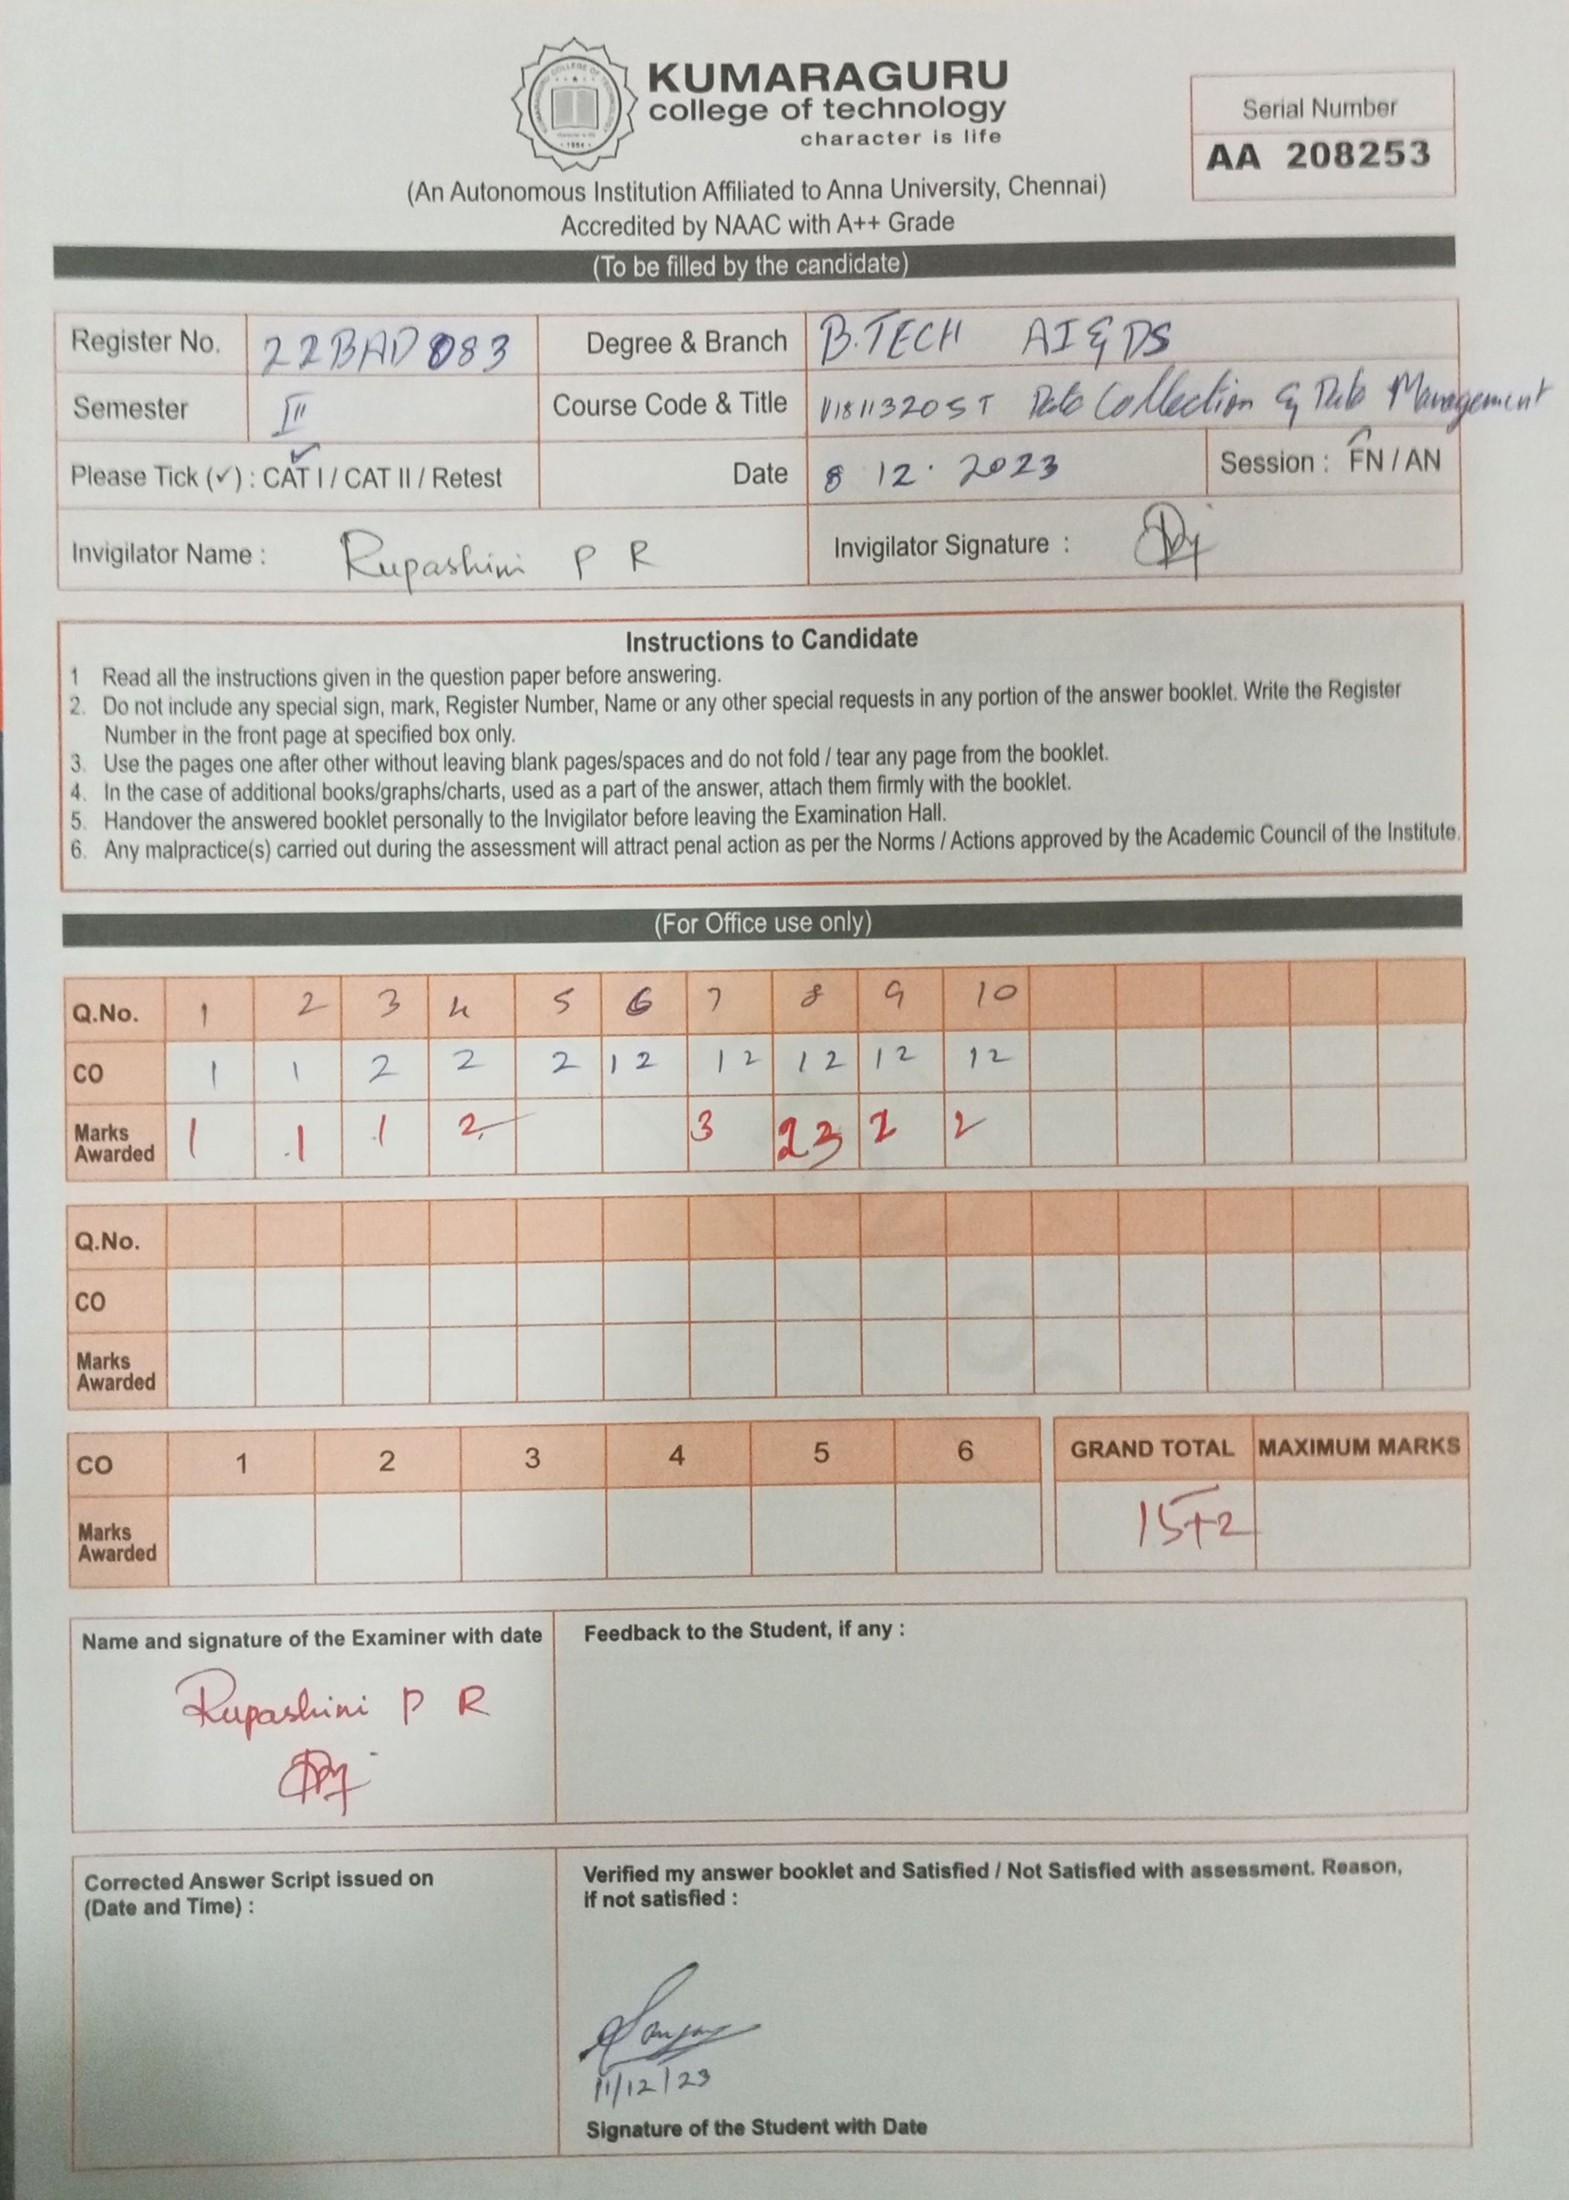 KUMARAGURU
college of technology
character is life
Serial Number
AA 208253
(An Autonomous Institution Affiliated to Anna University, Chennai)
Accredited by NAAC with A++ Grade
(To be filled by the candidate)
Register No. 22BAD083 Degree & Branch B.TECH AI & DS
Semester III Course Code & Title Data Collection & Data Management
Please Tick (✓) : CAT I / CAT II / Retest Date 8 12. 2023 Session : FN / AN
Invigilator Name : Rupashini P R Invigilator Signature :
Instructions to Candidate
1 Read all the instructions given in the question paper before answering.
2. Do not include any special sign, mark, Register Number, Name or any other special requests in any portion of the answer booklet. Write the Register
Number in the front page at specified box only.
3. Use the pages one after other without leaving blank pages/spaces and do not fold / tear any page from the booklet.
4. In the case of additional books/graphs/charts, used as a part of the answer, attach them firmly with the booklet.
5. Handover the answered booklet personally to the Invigilator before leaving the Examination Hall.
6. Any malpractice(s) carried out during the assessment will attract penal action as per the Norms / Actions approved by the Academic Council of the Institute.
(For Office use only)
Q.No. 1 2 3 4 5 6 7 8 9 10
CO 1 1 2 2 2 12 12 12 12 12
Marks Awarded 1 1 1 2 3 23 2 2
Q.No.
CO
Marks Awarded
CO 1 2 3 4 5 6 GRAND TOTAL MAXIMUM MARKS
Marks Awarded 15+2
Name and signature of the Examiner with date
Rupashini P R
Feedback to the Student, if any :
Corrected Answer Script issued on
(Date and Time) :
Verified my answer booklet and Satisfied / Not Satisfied with assessment. Reason,
if not satisfied :
11/12/23
Signature of the Student with Date